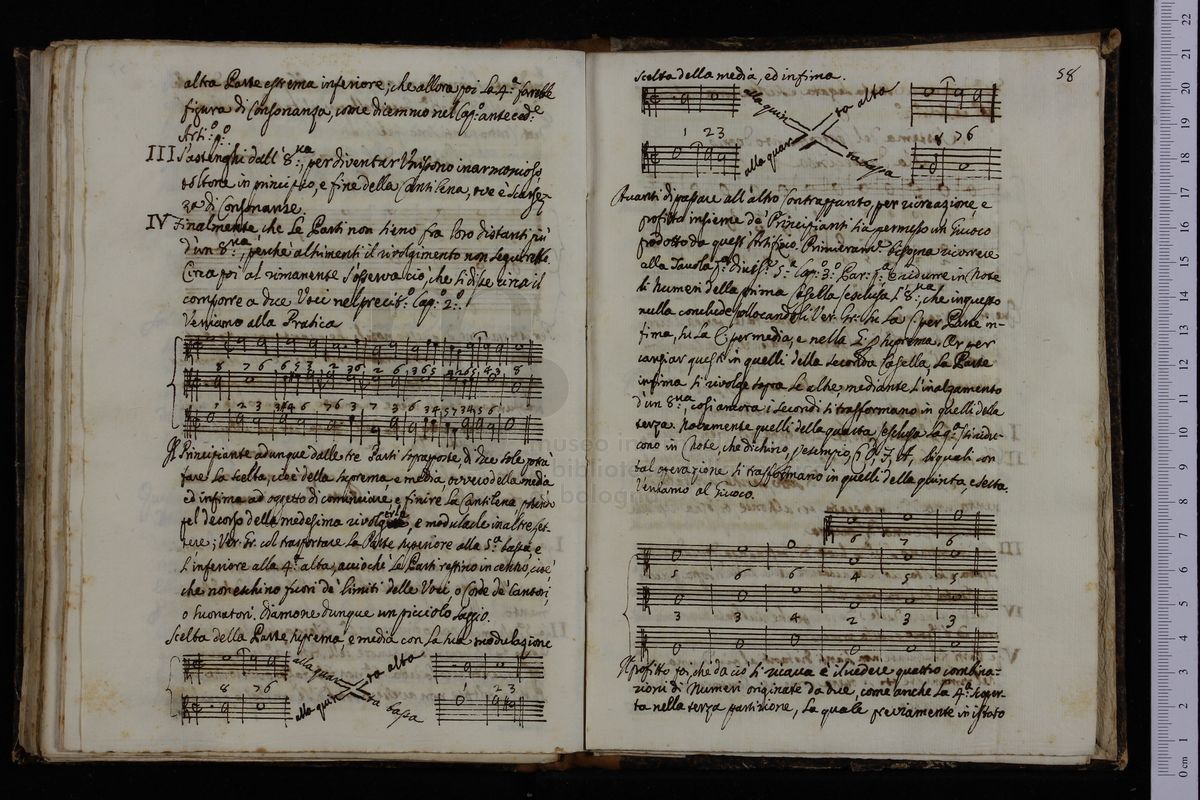 altra Parte estrema inferiore; che allora poi la 4.ª sarebbe
figura di Consonanza, come dicemmo nel Cap.º anteced.e
Arti.º p.º
III S'astenghi dall' 8.va, per diventar Unisono inarmonioso,
toltone in principio, e fine della Cantilena, ove è scarsez-
za di Consonanze.
IV Finalmente che le Parti non sieno fra loro distanti più
d'un 8.va, perchè altrimenti il rivolgimento non seguirebbe.
Circa poi al rimanente s'osserva ciò, che si disse circa il
comporre a due Voci nel precit.º Cap.º 2.º
Veniamo alla Pratica
Il Principiante adunque dalle tre Parti sopraposte, di due sole potrà
fare la scelta, cioè della suprema e media, ovvero della media
ed infima ad oggetto di continuare, e finire la Cantilena
nel decorso della medesima e modularle in altre
; Ver. Gr. col trasportare la Parte superiore alla 5.ª bassa, e
l'inferiore alla 4.ª alta, acciochè le Parti restino in centro, cioè
che non eschino fuori de' limiti delle Voci, o Corde de' Cantori,
o Suonatori. Diamone dunque un picciolo saggio.
Scelta della Parte suprema, e media con la sua modulazione
8 7 6
alla quar
ta alta
alla quin
ta bassa
1 2 3
58
Scelta della media, ed infima.
1 2 3
alla quin
ta alta
alla quar
ta bassa
8 7 6
Avanti di passare all'altro Contrappunto, per ricreazione, e
profitto insieme de' Principianti sia permesso un Giuoco
prodotto da quest'Artificio. Primieram.e bisogna ricorrere
alla Tavola p.ª Divis.e 5.ª Cap.º 3.º Par: p.ª e ridurre in Note
li Numeri della prima Casella, esclusa l'8.va, che in questo
nulla conclude, collocandoli Ver. Gr: su la C per Parte in-
fima, su la C per media, e nella E per suprema. Or per
cangiar questi in quelli della seconda Casella, la Parte
infima si rivolge sopra le altre, mediante l'inalzamento
d'un 8.va, così ancora i secondi si trasformano in quelli della
terza. Novamente quelli della quarta, esclusa la 9.ª si ridu-
cono in Note, che dichino, per esempio, li quali con
tal operazione si trasformano in quelli della quinta, e sesta.
Veniamo al Giuoco.
6 7 6
5 6 6 4 5 5
3 3 4 2 3 3
Il profitto poi, che da ciò si ricava è il vedere quattro combina-
zioni di Numeri originate da due, come anche la 4.ª scoper-
ta nella terza partizione, la quale previamente in istato
museo in
biblioteca
bologna